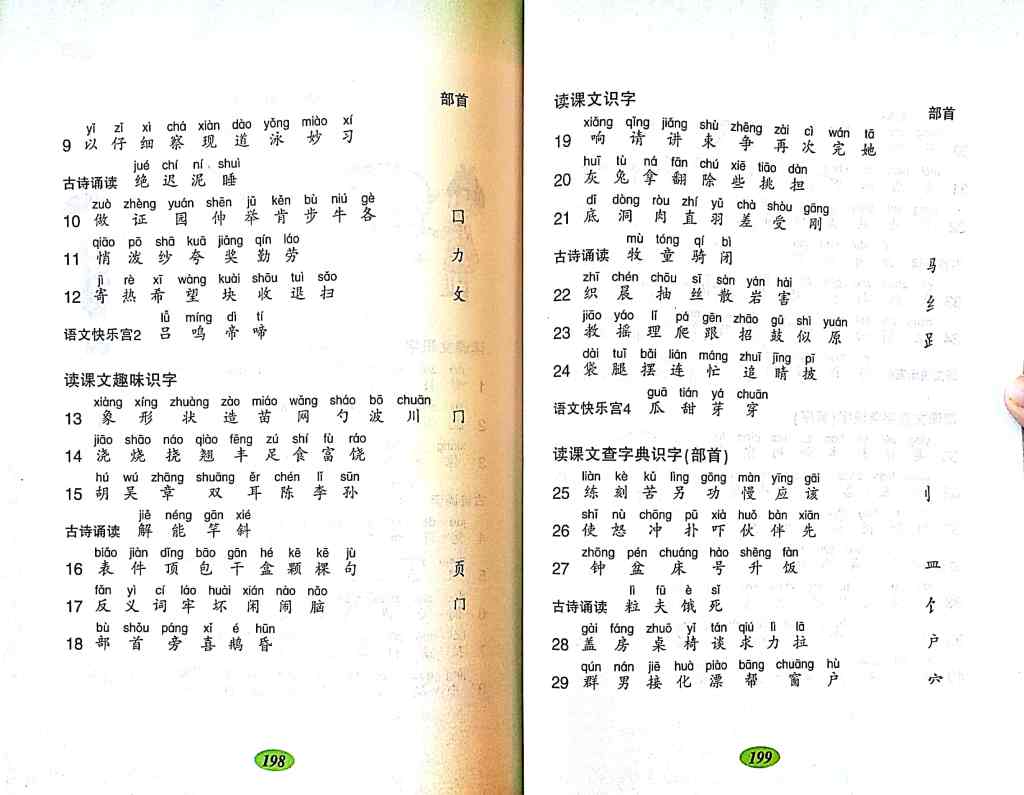 部首
yǐ zǐ xì chá xiàn dào yǒng miào xí
9 以 仔 细 察 现 道 泳 妙 习
jué chí ní shuì
古诗诵读 绝 迟 泥 睡
zuò zhèng yuán shēn jǔ kěn bù niú gè
10 做 证 园 伸 举 肯 步 牛 各 口
qiāo pō shā kuā jiǎng qín láo
11 悄 波 纱 夸 奖 勤 劳 力
jì rè xī wàng kuài shōu tuì sǎo
12 寄 热 希 望 块 收 退 扫 攵
lǚ míng dì tí
语文快乐宫2 吕 鸣 帝 啼
读课文趣味识字
xiàng xíng zhuàng zào miáo wǎng sháo bō chuān
13 象 形 状 造 苗 网 勺 波 川 冂
jiāo shāo náo qiào fēng zú shí fù ráo
14 浇 烧 挠 翘 丰 足 食 富 饶
hú wú zhāng shuāng ěr chén lǐ sūn
15 胡 吴 章 双 耳 陈 李 孙
jiě néng gān xié
古诗诵读 解 能 竿 斜
biǎo jiàn dǐng bāo gān hé kē kē jù
16 表 件 顶 包 干 盒 颗 棵 句 页
fǎn yì cí láo huài xián nào nǎo
17 反 义 词 牢 坏 闲 闹 脑 门
bù shǒu páng xǐ é hūn
18 部 首 旁 喜 鹅 昏
198
读课文识字 部首
xiǎng qǐng jiǎng shù zhēng zài cì wán tā
19 响 请 讲 束 争 再 次 完 她
huī tù ná fān chú xiē tiāo dàn
20 灰 兔 拿 翻 除 些 挑 担
dǐ dòng ròu zhí yǔ chà shòu gāng
21 底 洞 肉 直 羽 差 受 刚
mù tóng qí bì
古诗诵读 牧 童 骑 闭 马
zhī chén chōu sī sàn yán hài
22 织 晨 抽 丝 散 岩 害 纟
jiāo yáo lǐ pá gēn zhāo gǔ shì yuán
23 教 摇 理 爬 跟 招 鼓 似 原 𧾷
dài tuǐ bǎi lián máng zhuī jīng pī
24 袋 腿 摆 连 忙 追 睛 披
guā tián yá chuān
语文快乐宫4 瓜 甜 芽 穿
读课文查字典识字(部首)
liàn kè kǔ lìng gōng màn yīng gāi
25 练 刻 苦 另 功 慢 应 该 刂
shǐ nù chōng pū xià huǒ bàn xiān
26 使 怒 冲 扑 吓 伙 伴 先
zhōng pén chuáng hào shēng fàn
27 钟 盆 床 号 升 饭 皿
lì fū è sǐ
古诗诵读 粒 夫 饿 死 饣
gài fáng zhuō yǐ tán qiú lì lā
28 盖 房 桌 椅 谈 求 力 拉 户
qún nán jiē huà piào bāng chuāng hù
29 群 男 接 化 漂 帮 窗 户 穴
199